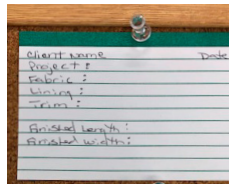 Client Name Date
Project :
Fabric :
Lining :
Trim :
Finished Length :
Finished Width :